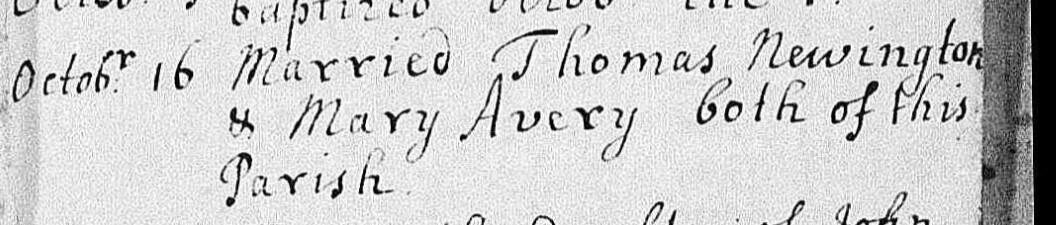 baptized
Octobr. 16 Married Thomas Newington
& Mary Avery both of this
Parish
John